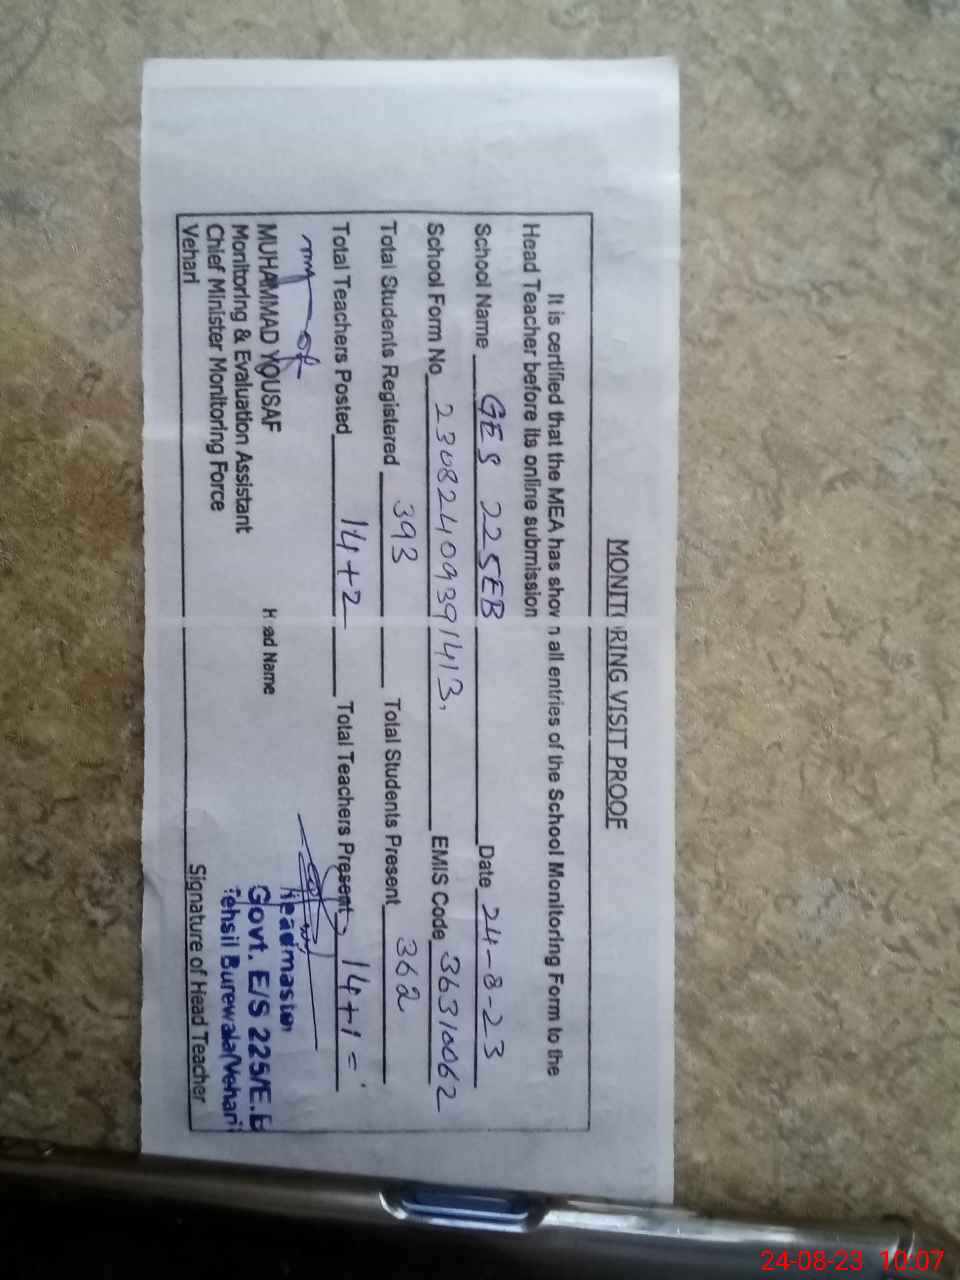 MONITORING VISIT PROOF
It is certified that the MEA has shown all entries of the School Monitoring Form to the
Head Teacher before its online submission
School Name GES 225EB Date 24-8-23
School Form No 23082409391413. EMIS Code 36310062
Total Students Registered 393 Total Students Present 362
Total Teachers Posted 14+2 Total Teachers Present 14+1 =
MUHAMMAD YOUSAF
Monitoring & Evaluation Assistant
Chief Minister Monitoring Force
Vehari
Head Name
Headmaster
Govt. E/S 225/E.B
Tehsil Burewala(Vehari)
Signature of Head Teacher
24-08-23 10:07